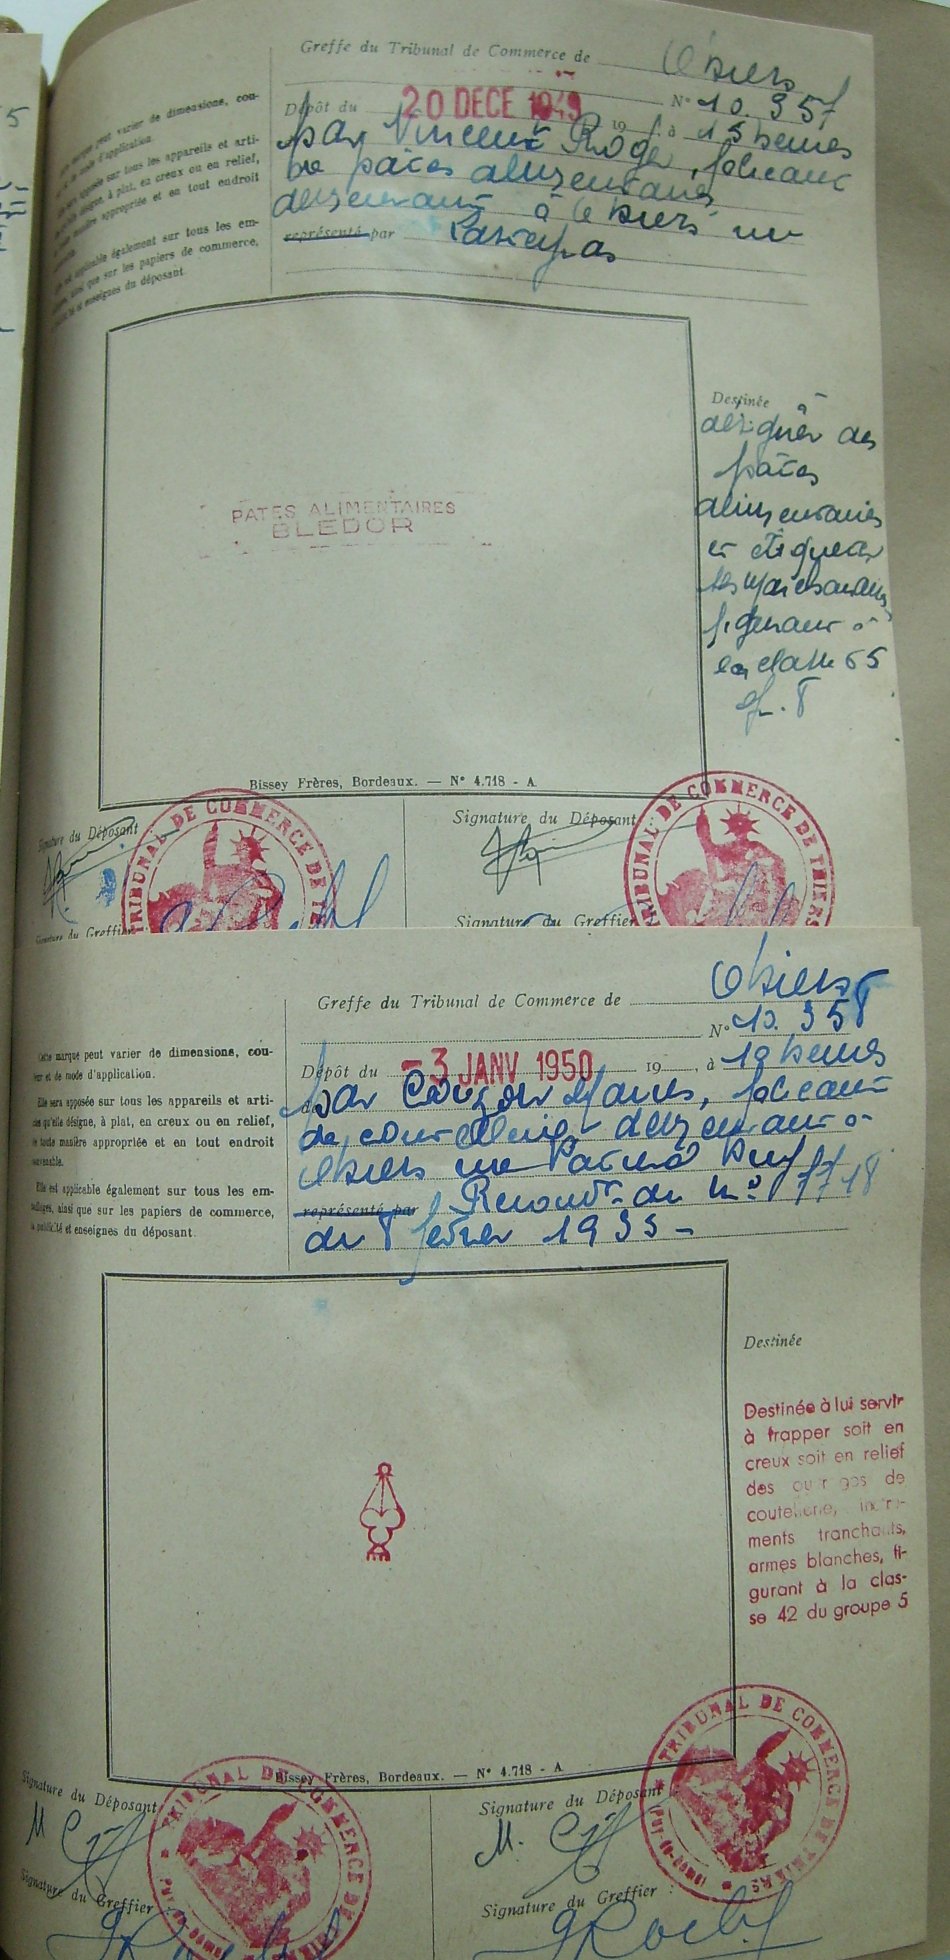 Greffe du Tribunal de Commerce de Thiers
N° 10.357
Dépôt du 20 DECE 1949 19 à 15 heures
par Vincent Roger, fabricant
de pâtes alimentaires
demeurant à Thiers, rue
représenté par
peut varier de dimensions, cou-
d'application.
sur tous les appareils et arti-
désigne, à plat, en creux ou en relief,
manière appropriée et en tout endroit
applicable également sur tous les em-
ainsi que sur les papiers de commerce,
et enseignes du déposant
PATES ALIMENTAIRES
BLEDOR
Destinée à
désigner des
pâtes
alimentaires
et
figurant à
la classe 65
gr. 8
Bissey Frères, Bordeaux. — N° 4.718 - A
Signature du Déposant
Signature du Déposant
TRIBUNAL DE COMMERCE DE
TRIBUNAL DE COMMERCE DE THIERS
Signature du Greffier
Signature du Greffier
Greffe du Tribunal de Commerce de Thiers
N° 10.358
Dépôt du - 3 JANV 1950 19 , à 19 heures
par fabricant
de coutellerie demeurant à
Thiers rue
représenté par Renouvt du n° 7718
du 8 février 1935 -
Cette marque peut varier de dimensions, cou-
leur et de mode d'application.
Elle sera apposée sur tous les appareils et arti-
cles qu'elle désigne, à plat, en creux ou en relief,
de toute manière appropriée et en tout endroit
convenable.
Elle est applicable également sur tous les em-
ballages, ainsi que sur les papiers de commerce,
la publicité et enseignes du déposant.
Destinée
Destinée à lui servir
à frapper soit en
creux soit en relief
des de
coutellerie, instru-
ments tranchants,
armes blanches, fi-
gurant à la clas-
se 42 du groupe 5
Bissey Frères, Bordeaux. — N° 4.718 - A
Signature du Déposant
Signature du Déposant
TRIBUNAL DE COMMERCE DE THIERS
TRIBUNAL DE COMMERCE DE THIERS
(PUY-DE-DOME)
Signature du Greffier :
Signature du Greffier :